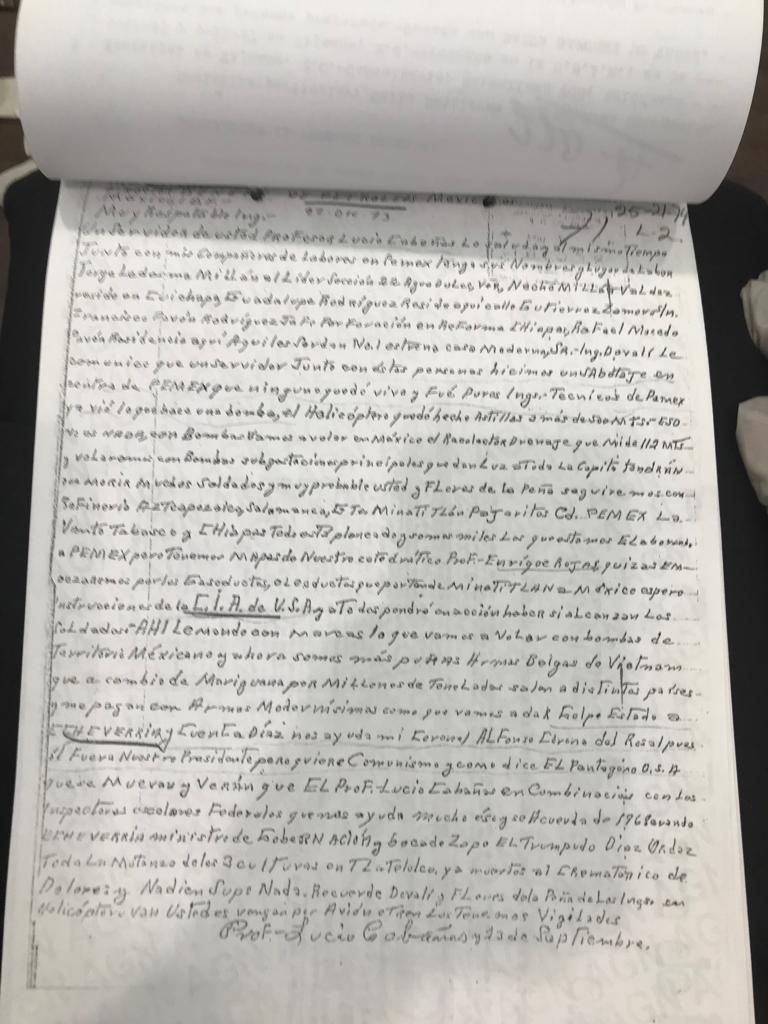 DE PETROLEOS Mexicanos
México
Muy Respetable Ing.-
22-Dic-73
25-21-74
L-2
Un Servidor de usted Profesor Lucio Cabañas Lo saluda y al mismo Tiempo
Junto con mis Compañeros de Labores en Pemex tengo sus Nombres y Lugar de Labor
Jorge Ledesma Millán el Lider Sección 22 Agua Dulce, Ver, Nacho Millán Valdez
reside en Cuichapa, Guadalupe Rodríguez Reside aquí calle Gutierrez Zamora S/n.
Francisco Pavón Rodríguez Jefe Perforación en Reforma CHiapas, Rafael Macedo
Pavón Residencia aquí Aquiles Serdan No.1 estrena casa Moderna, SR.-Ing. Dovali Le
comunico que un servidor Junto con éstas personas hicimos un SAbotaje en
contra de PEMEX que ninguno quedó vivo y Fué Puros Ings.- Tecnicos de Pemex
ya vió lo que hace una bomba, el Helicóptero quedó hecho Astillas a más de 500 MTS.- ESO
con Bombas Vamos a volar en México el Recolector Drenaje que Mide 112 MTS
y volaremos con Bombas subestaciones principales que dan Luz a Toda La Capital tendrán
que MORIR Muchos Soldados y muy probable usted y FLores de la Peña seguiremos con
Refineria AZTcapozalco, Salamanca, MinatiTLán Pajaritos Cd. PEMEX La
Venta Tabasco y CHiapas Todo está planeado y somos miles Los que estamos ELaborando
a PEMEX pero Tenemos MApas de Nuestro catedratico Prof.- Enrique Rojas, quizas EM-
pezaremos por los Gaseoductos, oLeoductos que parten de MinatiTLAN a México espero
instrucciones de la C.I.A. de U.S.A y a Todos pondré en acción haber si alcanzan Los
Soldados- AHI Le mando con marcas lo que vamos a Volar con bombas de
Territorio Méxicano y ahora somos más pues Armas Belgas de Vietnam
que a cambio de Mariguana por Millones de Toneladas salen a distintos paises
y me pagan con Armas Modernísimas como que vamos a daR Golpe Estado a
ECHEVERRIA y Cuenta Díaz nos ayuda mi Coronel ALFonso Corona del Rosal pues
él Fuera Nuestro Presidente pero quiere Comunismo y como dice EL Pentagono U.S.A
que se Mueran y Verán que EL Prof.- Lucio Cabañas en Combinación con Los
Inspectores escolares Federales que nos ayuda mucho ése y se Acuerda de 1968 cuando
ECHEVERRIA ministro de GobeRNAción y boca de Zapo EL Trompudo Diaz Ordaz
Toda La Matanza de las 3 culturas en TLatelolco, ya muertos al Crematorio de
Dolores y Nadien Supo Nada. Recuerde Dovali y FLores de la Peña de Los Ings. en
Helicóptero Van Ustedes vengan por Avión o Tren Los Tenemos Vigilados
Prof.- Lucio Cabañas y 23 de Septiembre.